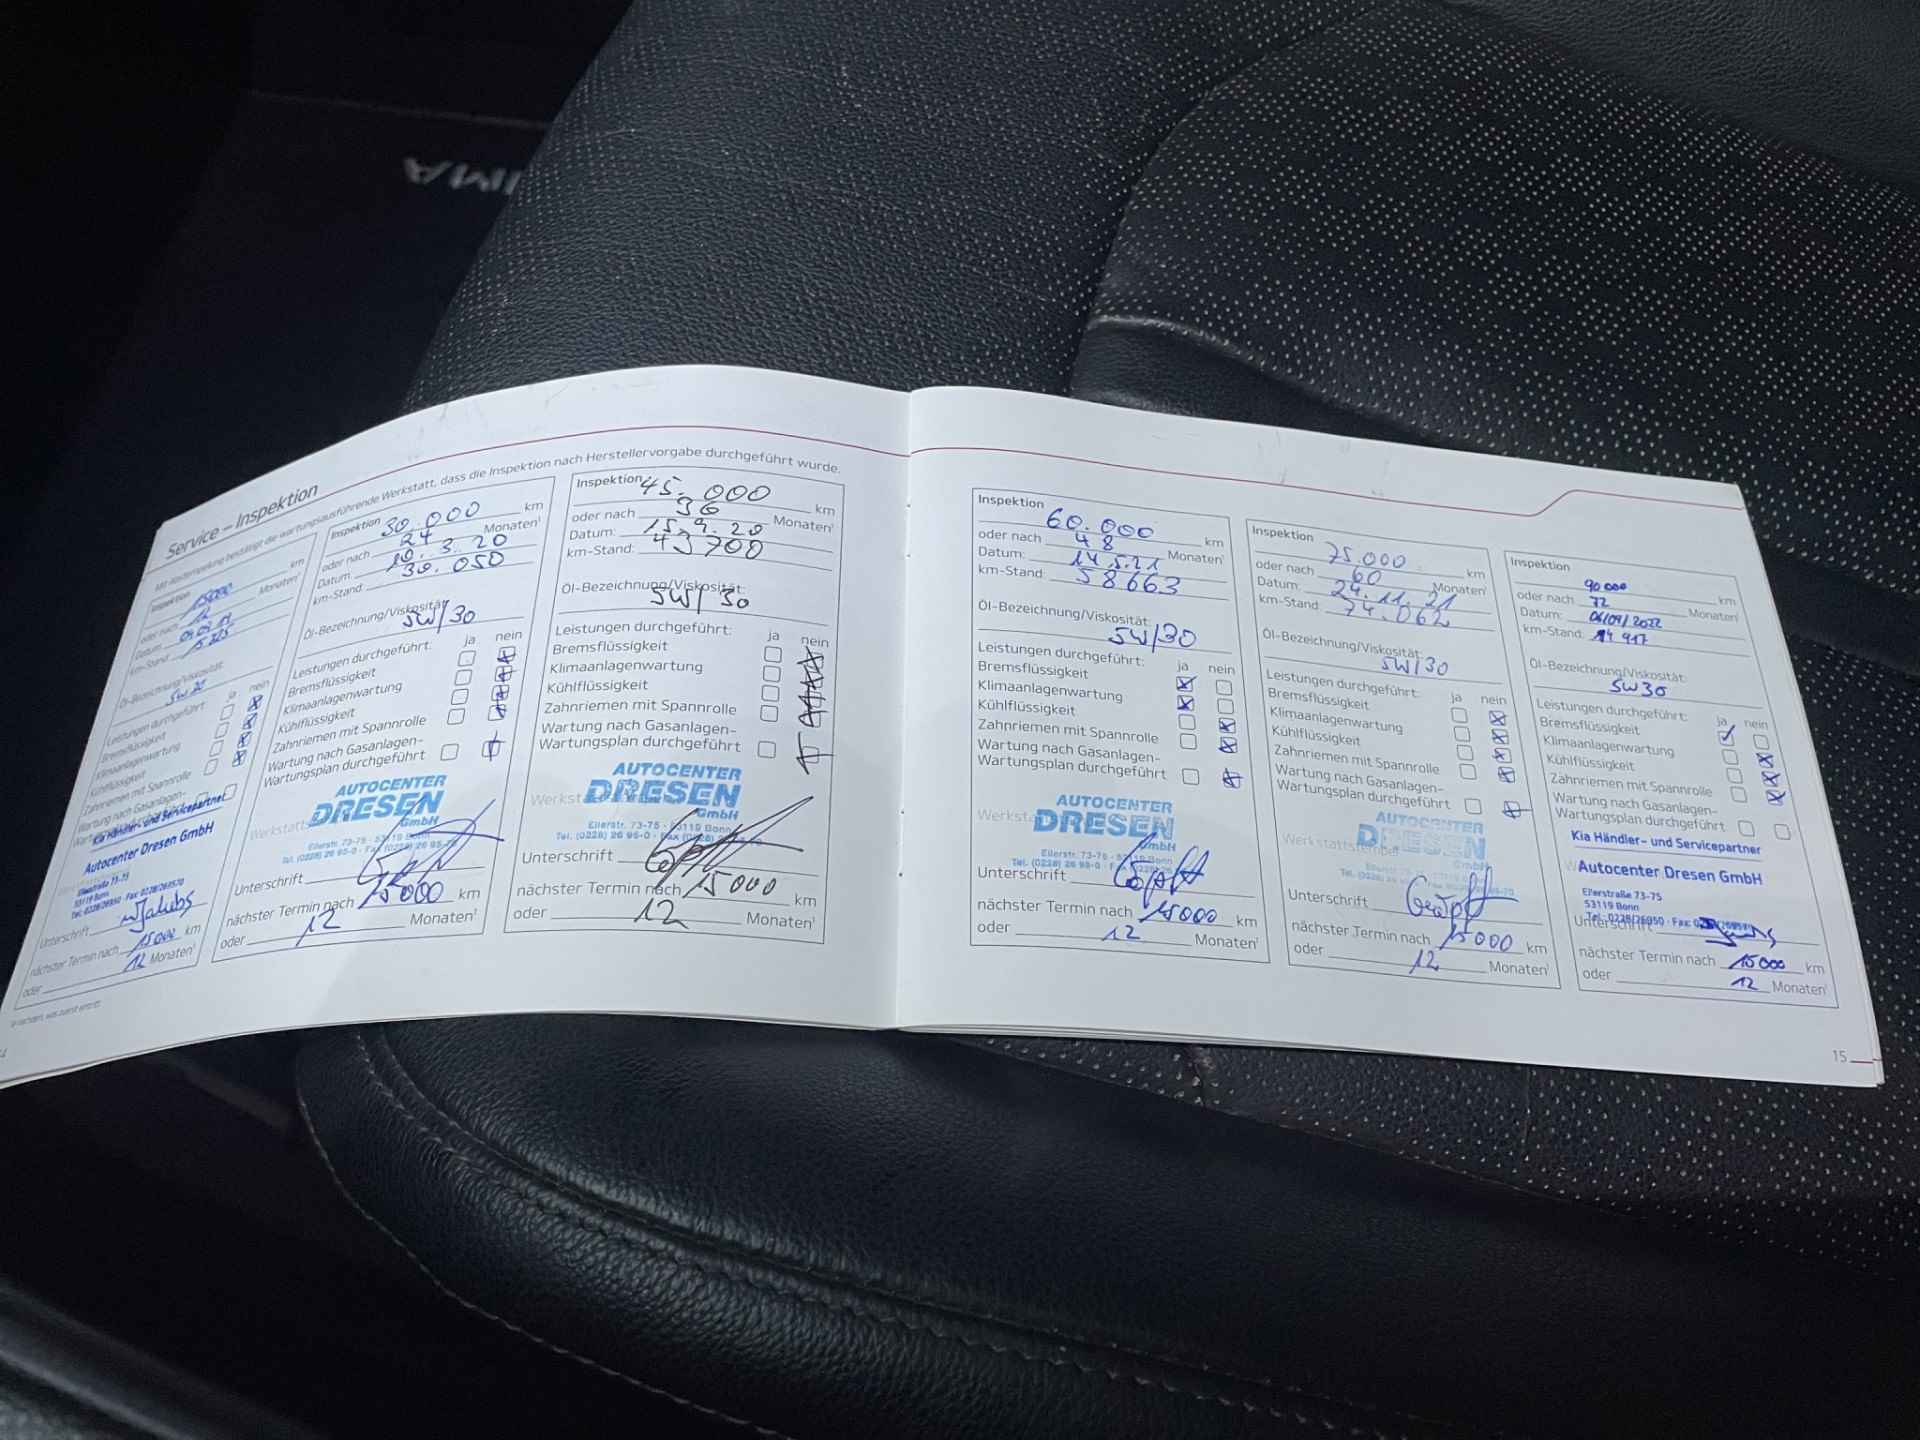 IMA
Service – Inspektion
Mit Abstempelung bestätigt die wartungsausführende Werkstatt, dass die Inspektion nach Herstellervorgabe durchgeführt wurde.
Inspektion 15000 km
oder nach 12 Monaten¹
Datum:
km-Stand:
Öl-Bezeichnung/Viskosität:
5W30
Leistungen durchgeführt: ja nein
Bremsflüssigkeit
Klimaanlagenwartung
Kühlflüssigkeit
Zahnriemen mit Spannrolle
Wartung nach Gasanlagen-
Kia Händler- und Servicepartner
Autocenter Dresen GmbH
Ellerstraße 73-75
53119 Bonn
Tel.: 0228/26950 · Fax: 0228/269570
Unterschrift Jakobs
nächster Termin nach 15000 km
oder 12 Monaten¹
Inspektion 30.000 km
oder nach 24 Monaten¹
Datum: 10.3.20
km-Stand: 30.050
Öl-Bezeichnung/Viskosität:
5W/30
Leistungen durchgeführt: ja nein
Bremsflüssigkeit
Klimaanlagenwartung
Kühlflüssigkeit
Zahnriemen mit Spannrolle
Wartung nach Gasanlagen-
Wartungsplan durchgeführt
AUTOCENTER
DRESEN
GmbH
Ellerstr. 73-75 · 53119 Bonn
Tel. (0228) 26 95-0 · Fax (0228) 26 95-70
Unterschrift
nächster Termin nach 15000 km
oder 12 Monaten¹
Inspektion 45.000 km
oder nach 36 Monaten¹
Datum: 15.9.20
km-Stand: 43700
Öl-Bezeichnung/Viskosität:
5W/30
Leistungen durchgeführt: ja nein
Bremsflüssigkeit
Klimaanlagenwartung
Kühlflüssigkeit
Zahnriemen mit Spannrolle
Wartung nach Gasanlagen-
Wartungsplan durchgeführt
AUTOCENTER
DRESEN
GmbH
Ellerstr. 73-75 · 53119 Bonn
Tel. (0228) 26 95-0 · Fax (0228)
Unterschrift
nächster Termin nach 15000 km
oder 12 Monaten¹
Inspektion 60.000 km
oder nach 48 Monaten¹
Datum: 14.5.21
km-Stand: 58.663
Öl-Bezeichnung/Viskosität:
5W/30
Leistungen durchgeführt: ja nein
Bremsflüssigkeit
Klimaanlagenwartung
Kühlflüssigkeit
Zahnriemen mit Spannrolle
Wartung nach Gasanlagen-
Wartungsplan durchgeführt
AUTOCENTER
DRESEN
GmbH
Ellerstr. 73-75 · 53119 Bonn
Tel. (0228) 26 95-0
Unterschrift
nächster Termin nach 15000 km
oder 12 Monaten¹
Inspektion 75.000 km
oder nach 60 Monaten¹
Datum: 24.11.21
km-Stand: 74.062
Öl-Bezeichnung/Viskosität:
5W/30
Leistungen durchgeführt: ja nein
Bremsflüssigkeit
Klimaanlagenwartung
Kühlflüssigkeit
Zahnriemen mit Spannrolle
Wartung nach Gasanlagen-
Wartungsplan durchgeführt
Werkstattstempel
AUTOCENTER
DRESEN
GmbH
Unterschrift
nächster Termin nach 15000 km
oder 12 Monaten¹
Inspektion 90000 km
oder nach 72 Monaten¹
Datum: 06/09/2022
km-Stand:
Öl-Bezeichnung/Viskosität:
5W30
Leistungen durchgeführt: ja nein
Bremsflüssigkeit
Klimaanlagenwartung
Kühlflüssigkeit
Zahnriemen mit Spannrolle
Wartung nach Gasanlagen-
Wartungsplan durchgeführt
Kia Händler- und Servicepartner
Autocenter Dresen GmbH
Ellerstraße 73-75
53119 Bonn
Tel.: 0228/26950 · Fax:
Unterschrift
nächster Termin nach 15000 km
oder 12 Monaten¹
15